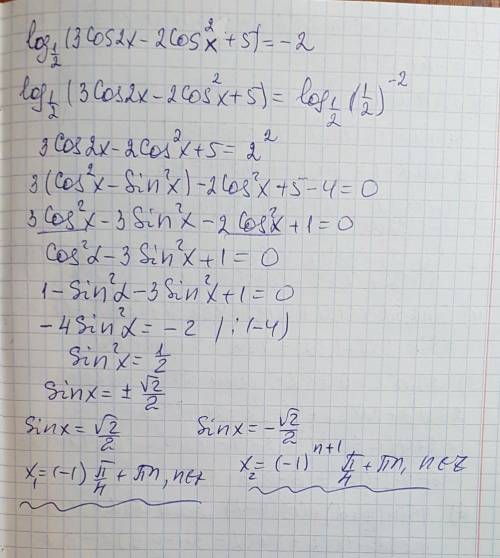 log_{1/2} (3cos2x - 2cos²x + 5) = -2
log_{1/2} (3cos2x - 2cos²x + 5) = log_{1/2} (1/2)^{-2}
3cos2x - 2cos²x + 5 = 2²
3(cos²x - Sin²x) - 2cos²x + 5 - 4 = 0
3cos²x - 3Sin²x - 2cos²x + 1 = 0
cos²α - 3Sin²x + 1 = 0
1 - Sin²α - 3Sin²x + 1 = 0
-4Sin²α = -2 /:(-4)
Sin²x = 1/2
Sinx = ± √2/2
Sinx = √2/2 Sinx = -√2/2
x₁ = (-1) π/4 + πn, n∈z x₂ = (-1)^{n+1} π/4 + πn, n∈z